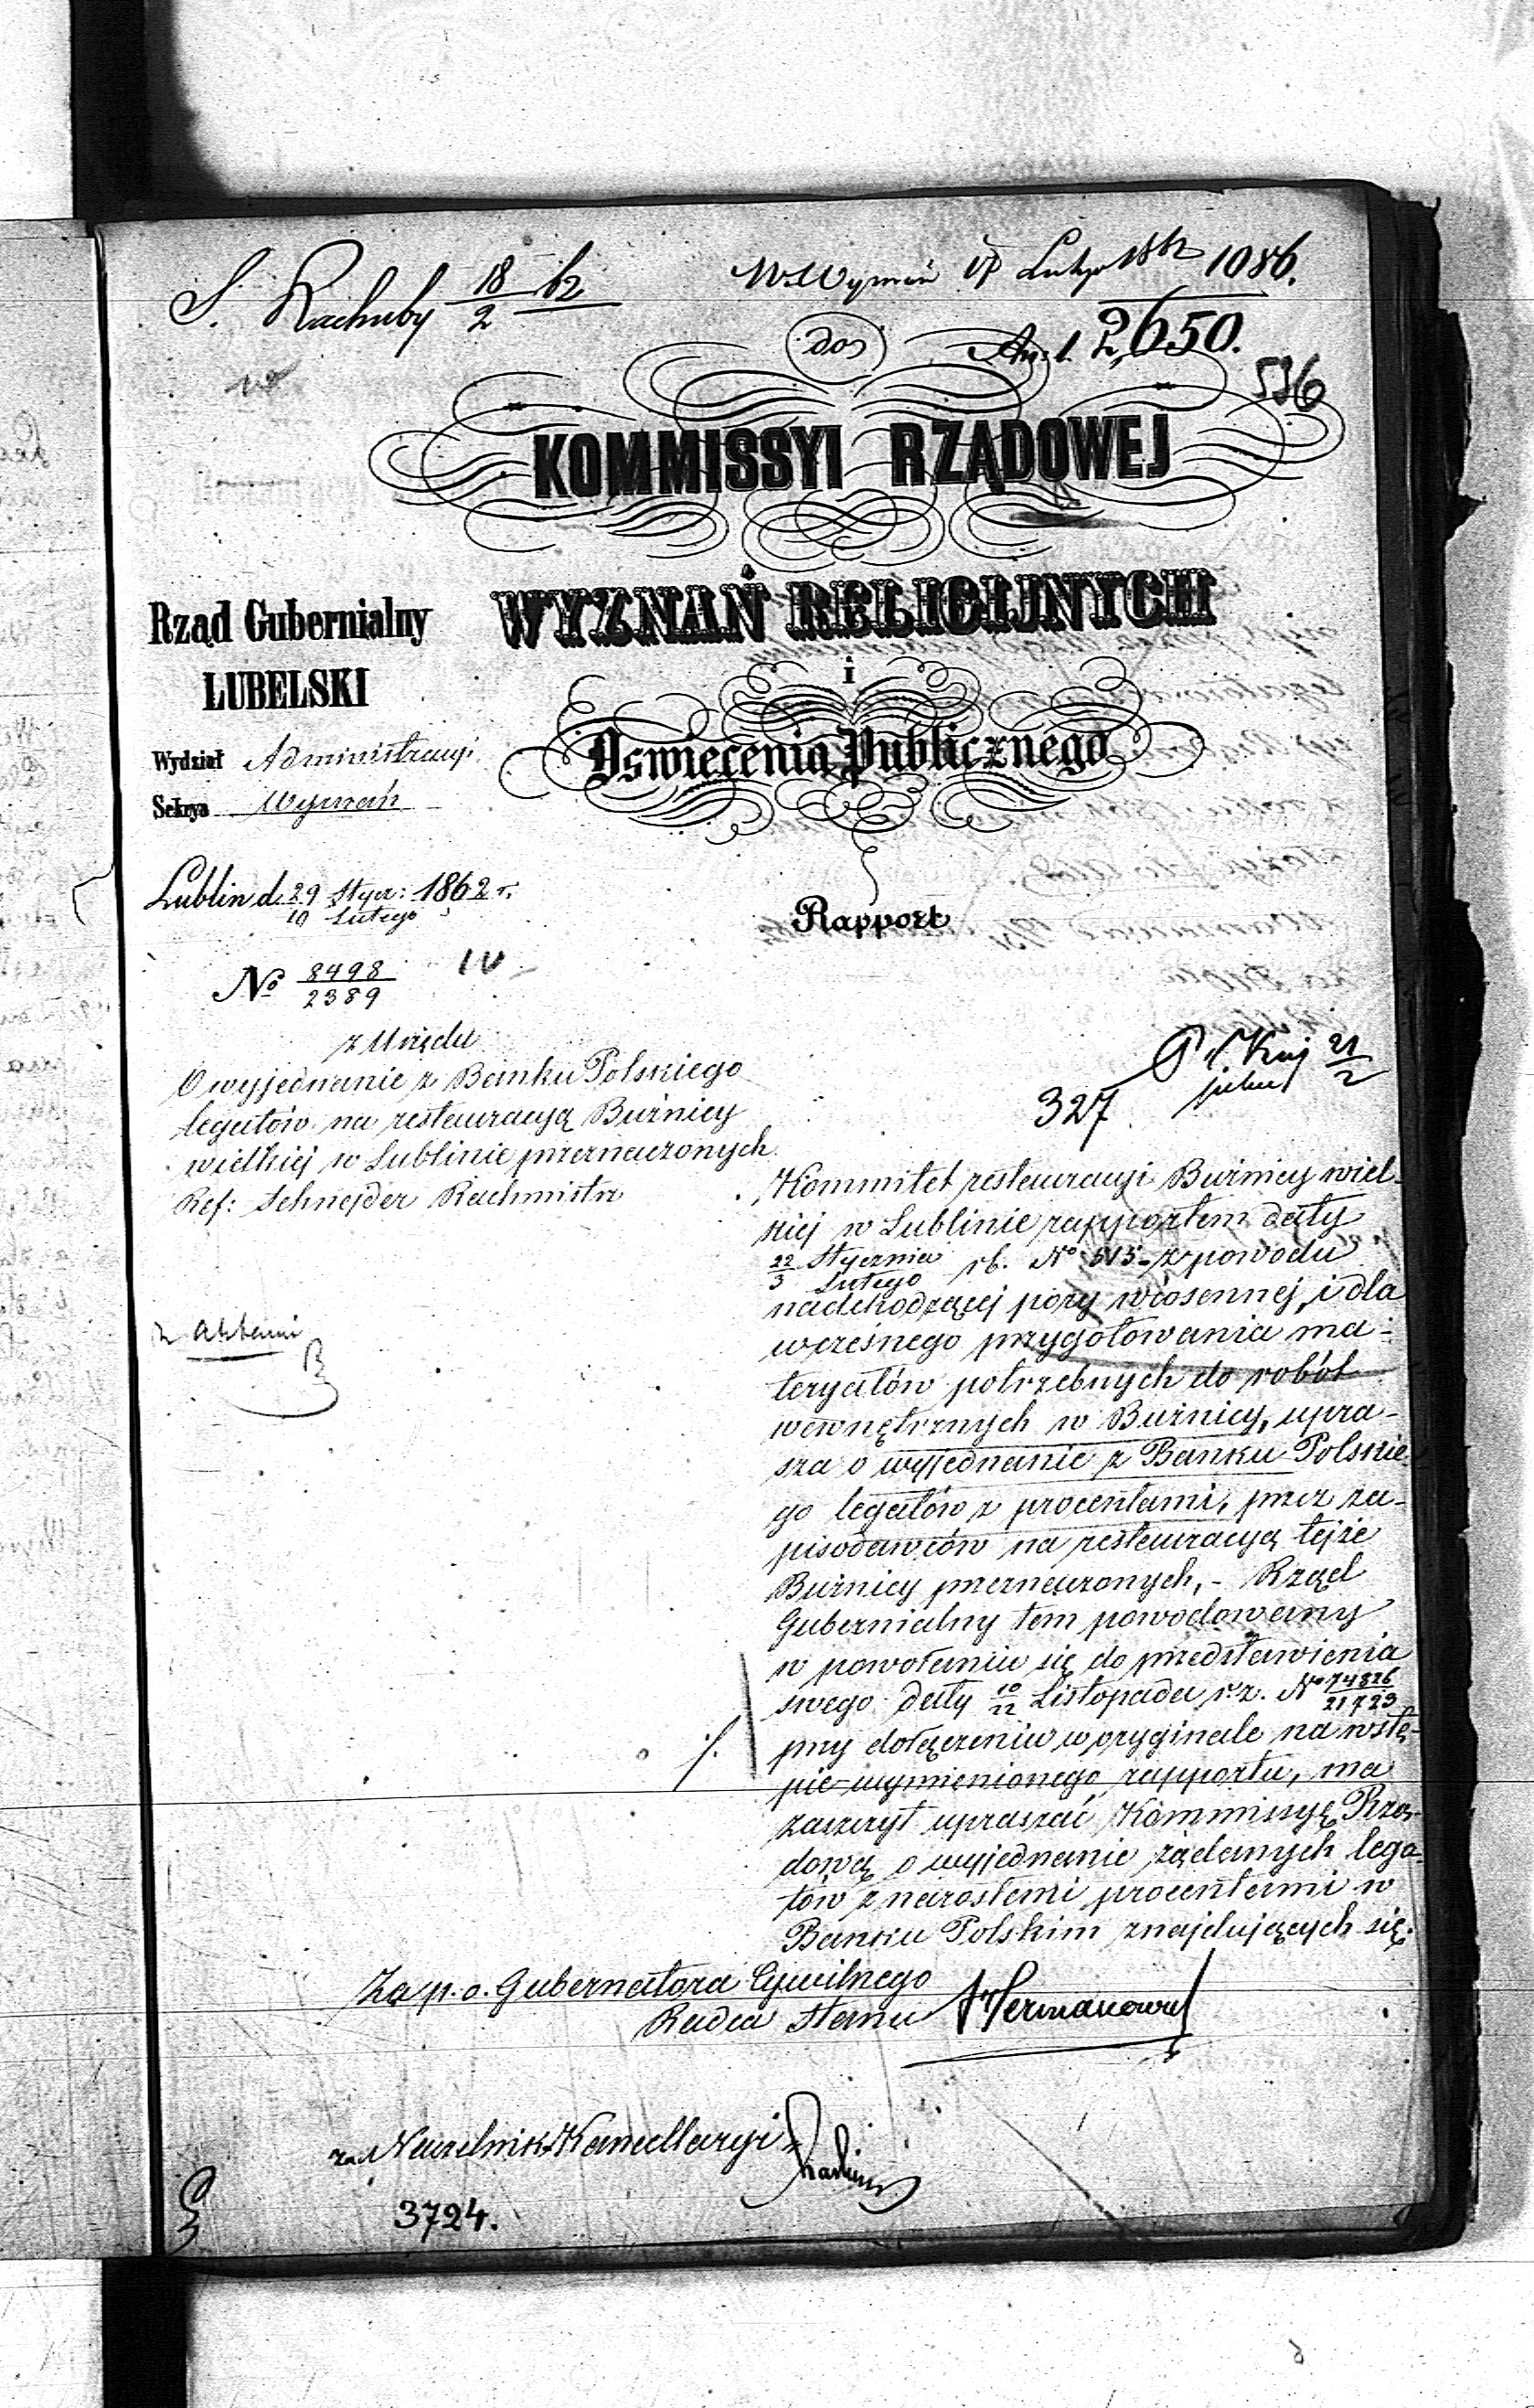 S. Rachuby 18/2 62
W. Wyznań 17 Lutego 1862 1086.
do
An. 1. 2,650.
536
KOMMISSYI RZĄDOWEJ
WYZNAŃ RELIGIJNYCH
i
Oswiecenia Publicznego
Rząd Gubernialny
LUBELSKI
Wydział Administracyi
Sekcya Wyznań
Lublin d. 29 Stycz: / 10 Lutego 1862 r.
Rapport
No 8498/2389
z Urzędu
O wyjednanie z Banku Polskiego
legatów na restauracyą Buźnicy
wielkiej w Lublinie przeznaczonych.
Ref: Schnejder Rachmistrz
z aktami
21/2
327
Kommitet restauracyi Buźnicy wiel-
kiej w Lublinie rapportem daty
22 Stycznia / 3 Lutego rb. No 515 z powodu
nadchodzącej pory wiosennej, i dla
wcześnego przygotowania ma-
teryałów potrzebnych do robót
wewnętrznych w Buźnicy, upra-
sza o wyjednanie z Banku Polskie-
go legatów z procentami, przez za-
pisodawców na restauracyą tejże
Buźnicy przeznaczonych, - Rząd
Gubernialny tem powodowany
w powołaniu się do przedstawienia
swego daty 10/22 Listopada r.z. No 74826/21723
przy dołączeniu w oryginale na wstę-
pie wymienionego rapportu, ma
zaszczyt upraszać Kommissyę Rzą-
dową o wyjednanie żądanych lega-
tów z narosłemi procentami w
Banku Polskim znajdujących się.
Za p.o. Gubernatora Cywilnego
Radca Stanu
za Naczelnik Kancellaryi
3724.